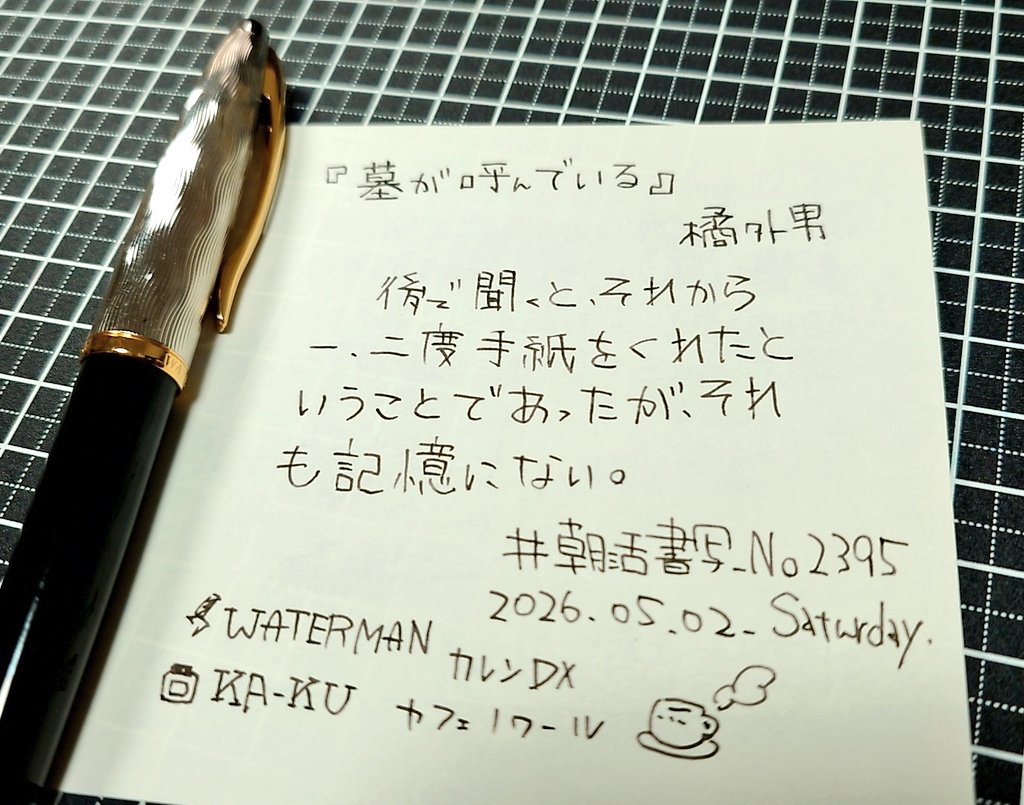 『墓が呼んでいる』
橘外男
後で聞くと、それから
一、二度手紙をくれたと
いうことであったが、それ
も記憶にない。
#朝活書写_No2395
2026.05.02_Saturday.
WATERMAN カレンDX
KA-KU カフェノワール